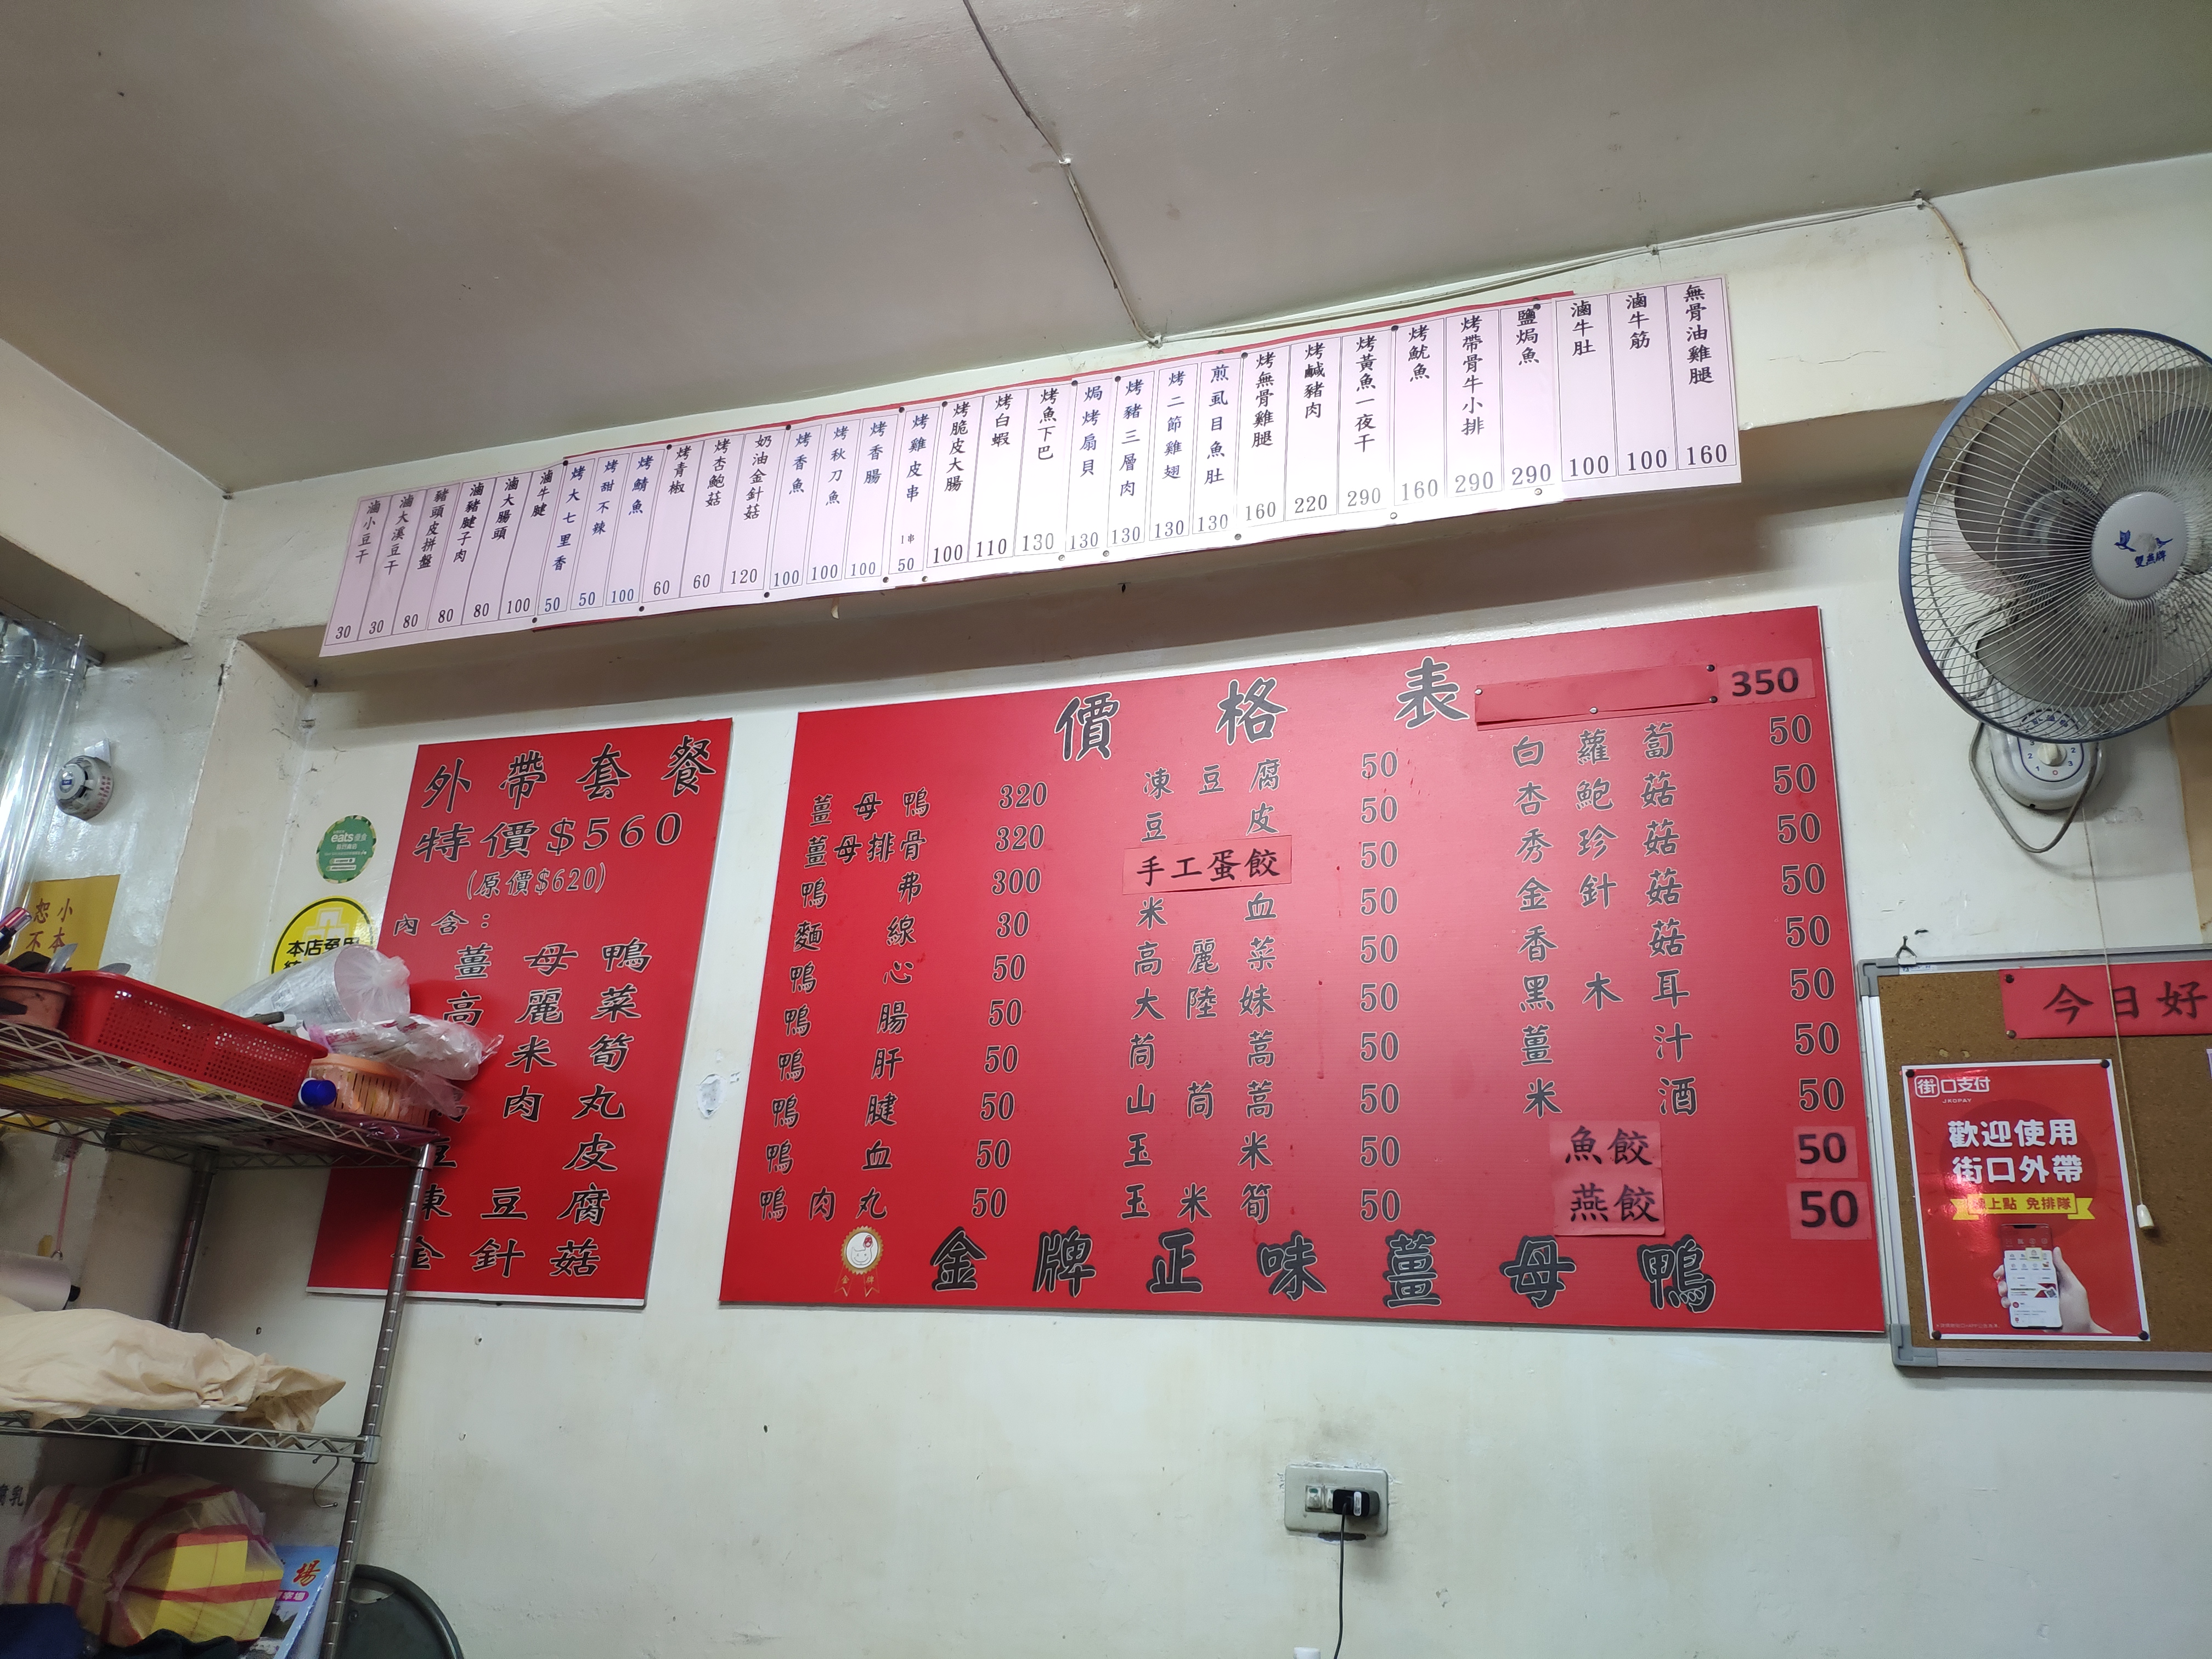 無骨油雞腿 160
滷牛筋 100
滷牛肚 100
鹽焗魚 290
烤帶骨牛小排 290
烤魷魚 160
烤黃魚一夜干 290
烤鹹豬肉 220
烤無骨雞腿 160
煎虱目魚肚 130
烤二節雞翅 130
烤豬三層肉 130
焗烤扇貝 130
烤魚下巴 130
烤白蝦 110
烤脆皮大腸 100
烤雞皮串 1串 50
烤香腸 100
烤秋刀魚 100
烤香魚 100
奶油金針菇 120
烤杏鮑菇 60
烤青椒 60
烤鯖魚 100
烤甜不辣 50
烤大七里香 50
滷牛腱 100
滷大腸頭 80
滷豬腱子肉 80
豬頭皮拼盤 80
滷大溪豆干 30
滷小豆干 30
外帶套餐
特價$560
(原價$620)
內含：
薑母鴨
高麗菜
米筍
肉丸
皮
凍豆腐
金針菇
價格表
350
薑母鴨 320
薑母排骨 320
鴨弗 300
麵線 30
鴨心 50
鴨腸 50
鴨肝 50
鴨腱 50
鴨血 50
鴨肉丸 50
凍豆腐 50
豆皮 50
手工蛋餃 50
米血 50
高麗菜 50
大陸妹 50
茼蒿 50
山茼蒿 50
玉米 50
玉米筍 50
白蘿蔔 50
杏鮑菇 50
秀珍菇 50
金針菇 50
香菇 50
黑木耳 50
薑汁 50
米酒 50
魚餃 50
燕餃 50
金牌
金牌正味薑母鴨
eats
本店免用
小本
恕不
今日好
街口支付
JKOPAY
歡迎使用
街口外帶
線上點 免排隊
雙燕牌
場
腐乳